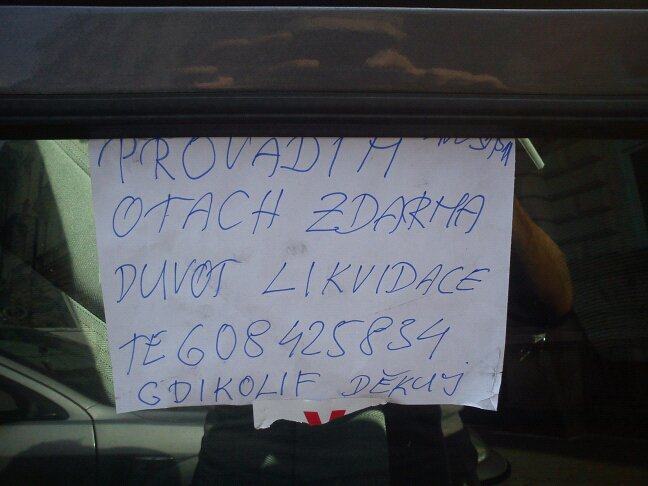 PROVADIM
OTACH ZDARMA
DUVOT LIKVIDACE
TE 608425834
GDIKOLIF DĚKUJ